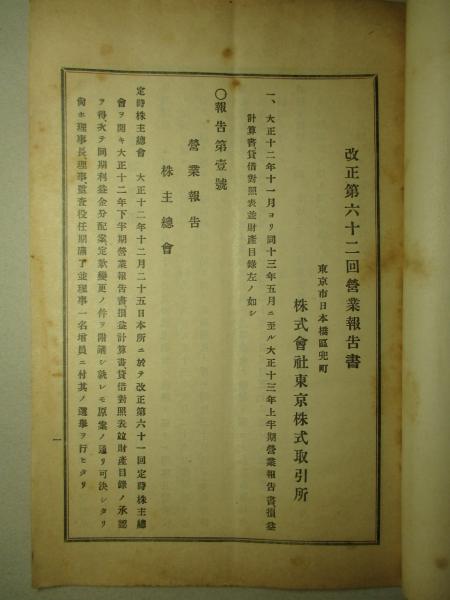 改正第六十二回營業報告書
東京市日本橋區兜町
株式會社東京株式取引所
一、大正十二年十一月ヨリ同十三年五月ニ至ル大正十三年上半期營業報告書損益
計算書貸借對照表並財產目錄左ノ如シ
〇報告第壹號
營業報告
株主總會
定時株主總會　大正十二年十二月二十五日本所ニ於テ改正第六十一回定時株主總
會ヲ開キ大正十二年下半期營業報告書損益計算書貸借對照表竝財產目錄ノ承認
ヲ得次テ同期利益金分配案定款變更ノ件ヲ附議シ孰レモ原案ノ通リ可決シタリ
尙ホ理事長理事監査役任期滿了並理事一名增員ニ付其ノ選擧ヲ行ヒタリ
一